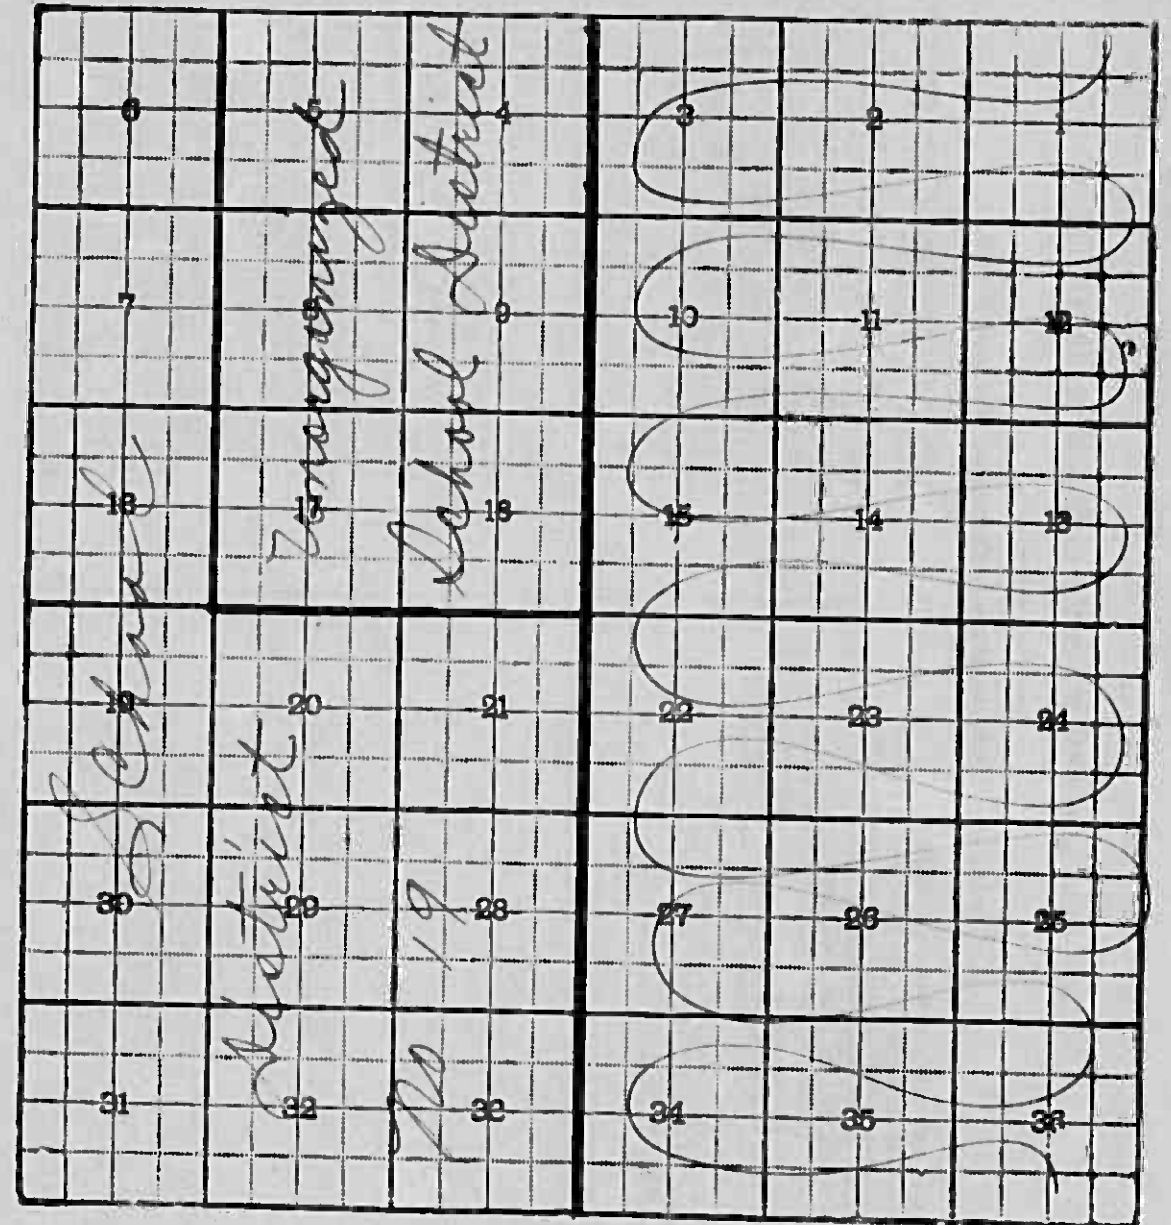 6 5 4 3 2 1
7 8 9 10 11 12
18 17 16 15 14 13
19 20 21 22 23 24
30 29 28 27 26 25
31 32 33 34 35 36
School
District
No 19
Unorganized
School District